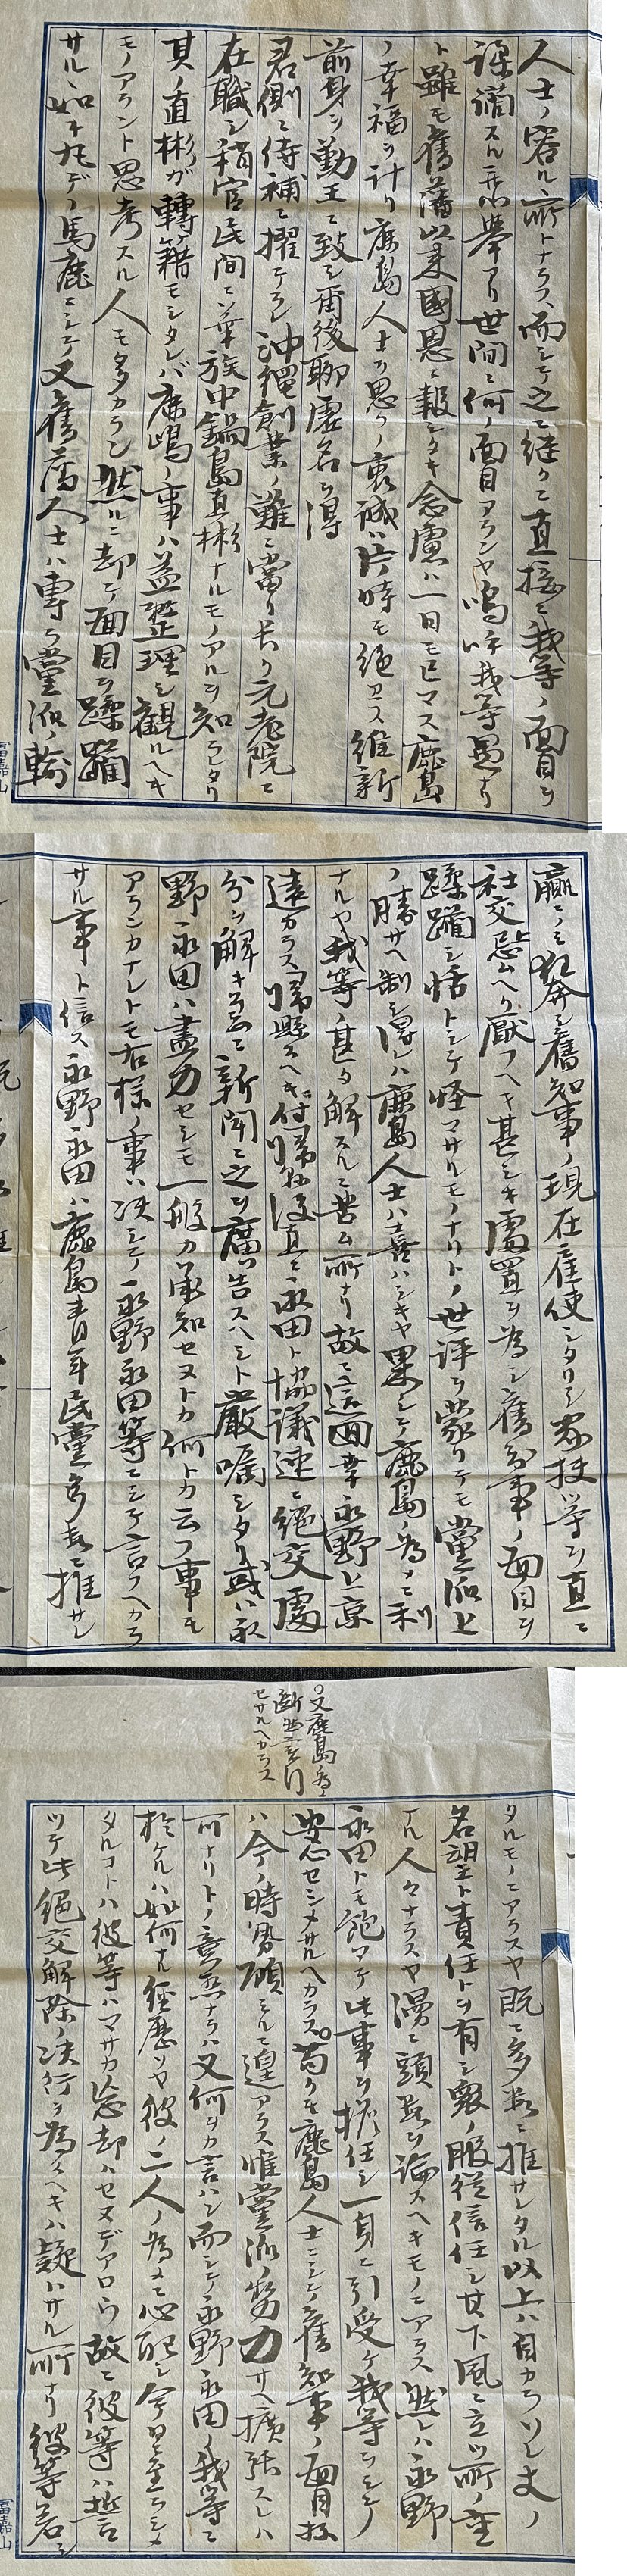 人士ノ容ルヽ所トナラス而シテ之ニ継クニ直接ニ我等ノ面目ヲ
蹂躙スル所ノ挙アリ世間ニ何ノ面目アランヤ嗚呼我等愚ナリ
ト雖モ舊藩以来國恩ニ報シタキ念慮ハ一日モ已マス鹿島
ノ幸福ヲ計リ鹿島人士ヲ思フノ衷誠ハ片時モ絶ヱス維新
前身ヲ勤王ニ致シ爾後聊虚名ヲ得
君側ニ侍補ニ擢テラレ沖縄創業ノ難ニ當リ長ク元老院ニ
在職シ稍官民間ニ華族中鍋島直彬ナルモノアルヲ知ラレタリ
其ノ直彬ガ轉籍モシタレバ鹿嶋ノ事ハ益整理シ観ルヘキ
モノアラント思考スル人モ多カラン然ルニ却テ面目ヲ蹂躙
サルヽ如キ丸デノ馬鹿ニシテ又舊藩人士ハ専ラ黨派ノ輸
贏ニノミ狂奔シ舊知事ノ現在雇使シタリシ家扶等ヲ直ニ
社交忌ムヘク厭フヘキ甚シキ處置ヲ為シ舊知事ノ面目ヲ
蹂躙シ恬トシテ怪マサルモノナリトノ世評ヲ蒙リテモ黨派上
ノ勝サヘ制シ得レハ鹿島人士ハ喜ハシキヤ果シテ鹿島ノ為メニ利
ナルヤ我等ノ甚タ解スルニ苦ム所ナリ故ニ這回幸永野上京
遠カラス帰縣スヘキニ付帰縣後直ニ永田ト協議速ニ絶交處
分ヲ解キ而シテ新聞ニ之ヲ廣告スヘシト嚴嘱シタリ或ハ永
野永田ハ盡力セシモ一般カ承知セヌトカ何トカ云フ事モ
アランカナレトモ右様ノ事ハ决シテ永野永田等ニシテ言フヘカラ
サル事ト信ス永野永田ハ鹿島青年民黨多数ニ推サレ
○又鹿島ノ為ニ
断然決行
セサルヘカラス
タルモノニアラスヤ既ニ多数ニ推サレタル以上ハ自カラソレ丈ノ
名望ト責任トヲ有シ衆ノ服従信任シ其下風ニ立ツ所ノ重
ナル人々ナラスヤ漫ニ頭数ヲ論スヘキモノニアラス然レハ永野
永田トモ飽マテ此事ヲ擔任シ一身ニ引受ケ我等ヲシテ
安心セシメサルヘカラス○苟クモ鹿島人士ニシテ舊知事ノ面目抔
ハ今ノ時勢顧ミルニ遑アラス惟黨派ノ勢力サヘ擴張スレハ
可ナリトノ意思ナラハ又何ヲカ言ハン而シテ永野永田ノ我等ニ
於ケルハ如何ナル経歴ソヤ彼ノ二人ノ為メニ心配シ今日ニ至ラシメ
タルコトハ彼等ハマサカ忘却ハセヌデアロウ故ニ彼等ハ誓
ツテ此絶交解除ノ决行ヲ為スヘキハ疑ハサル所ナリ彼等若シ